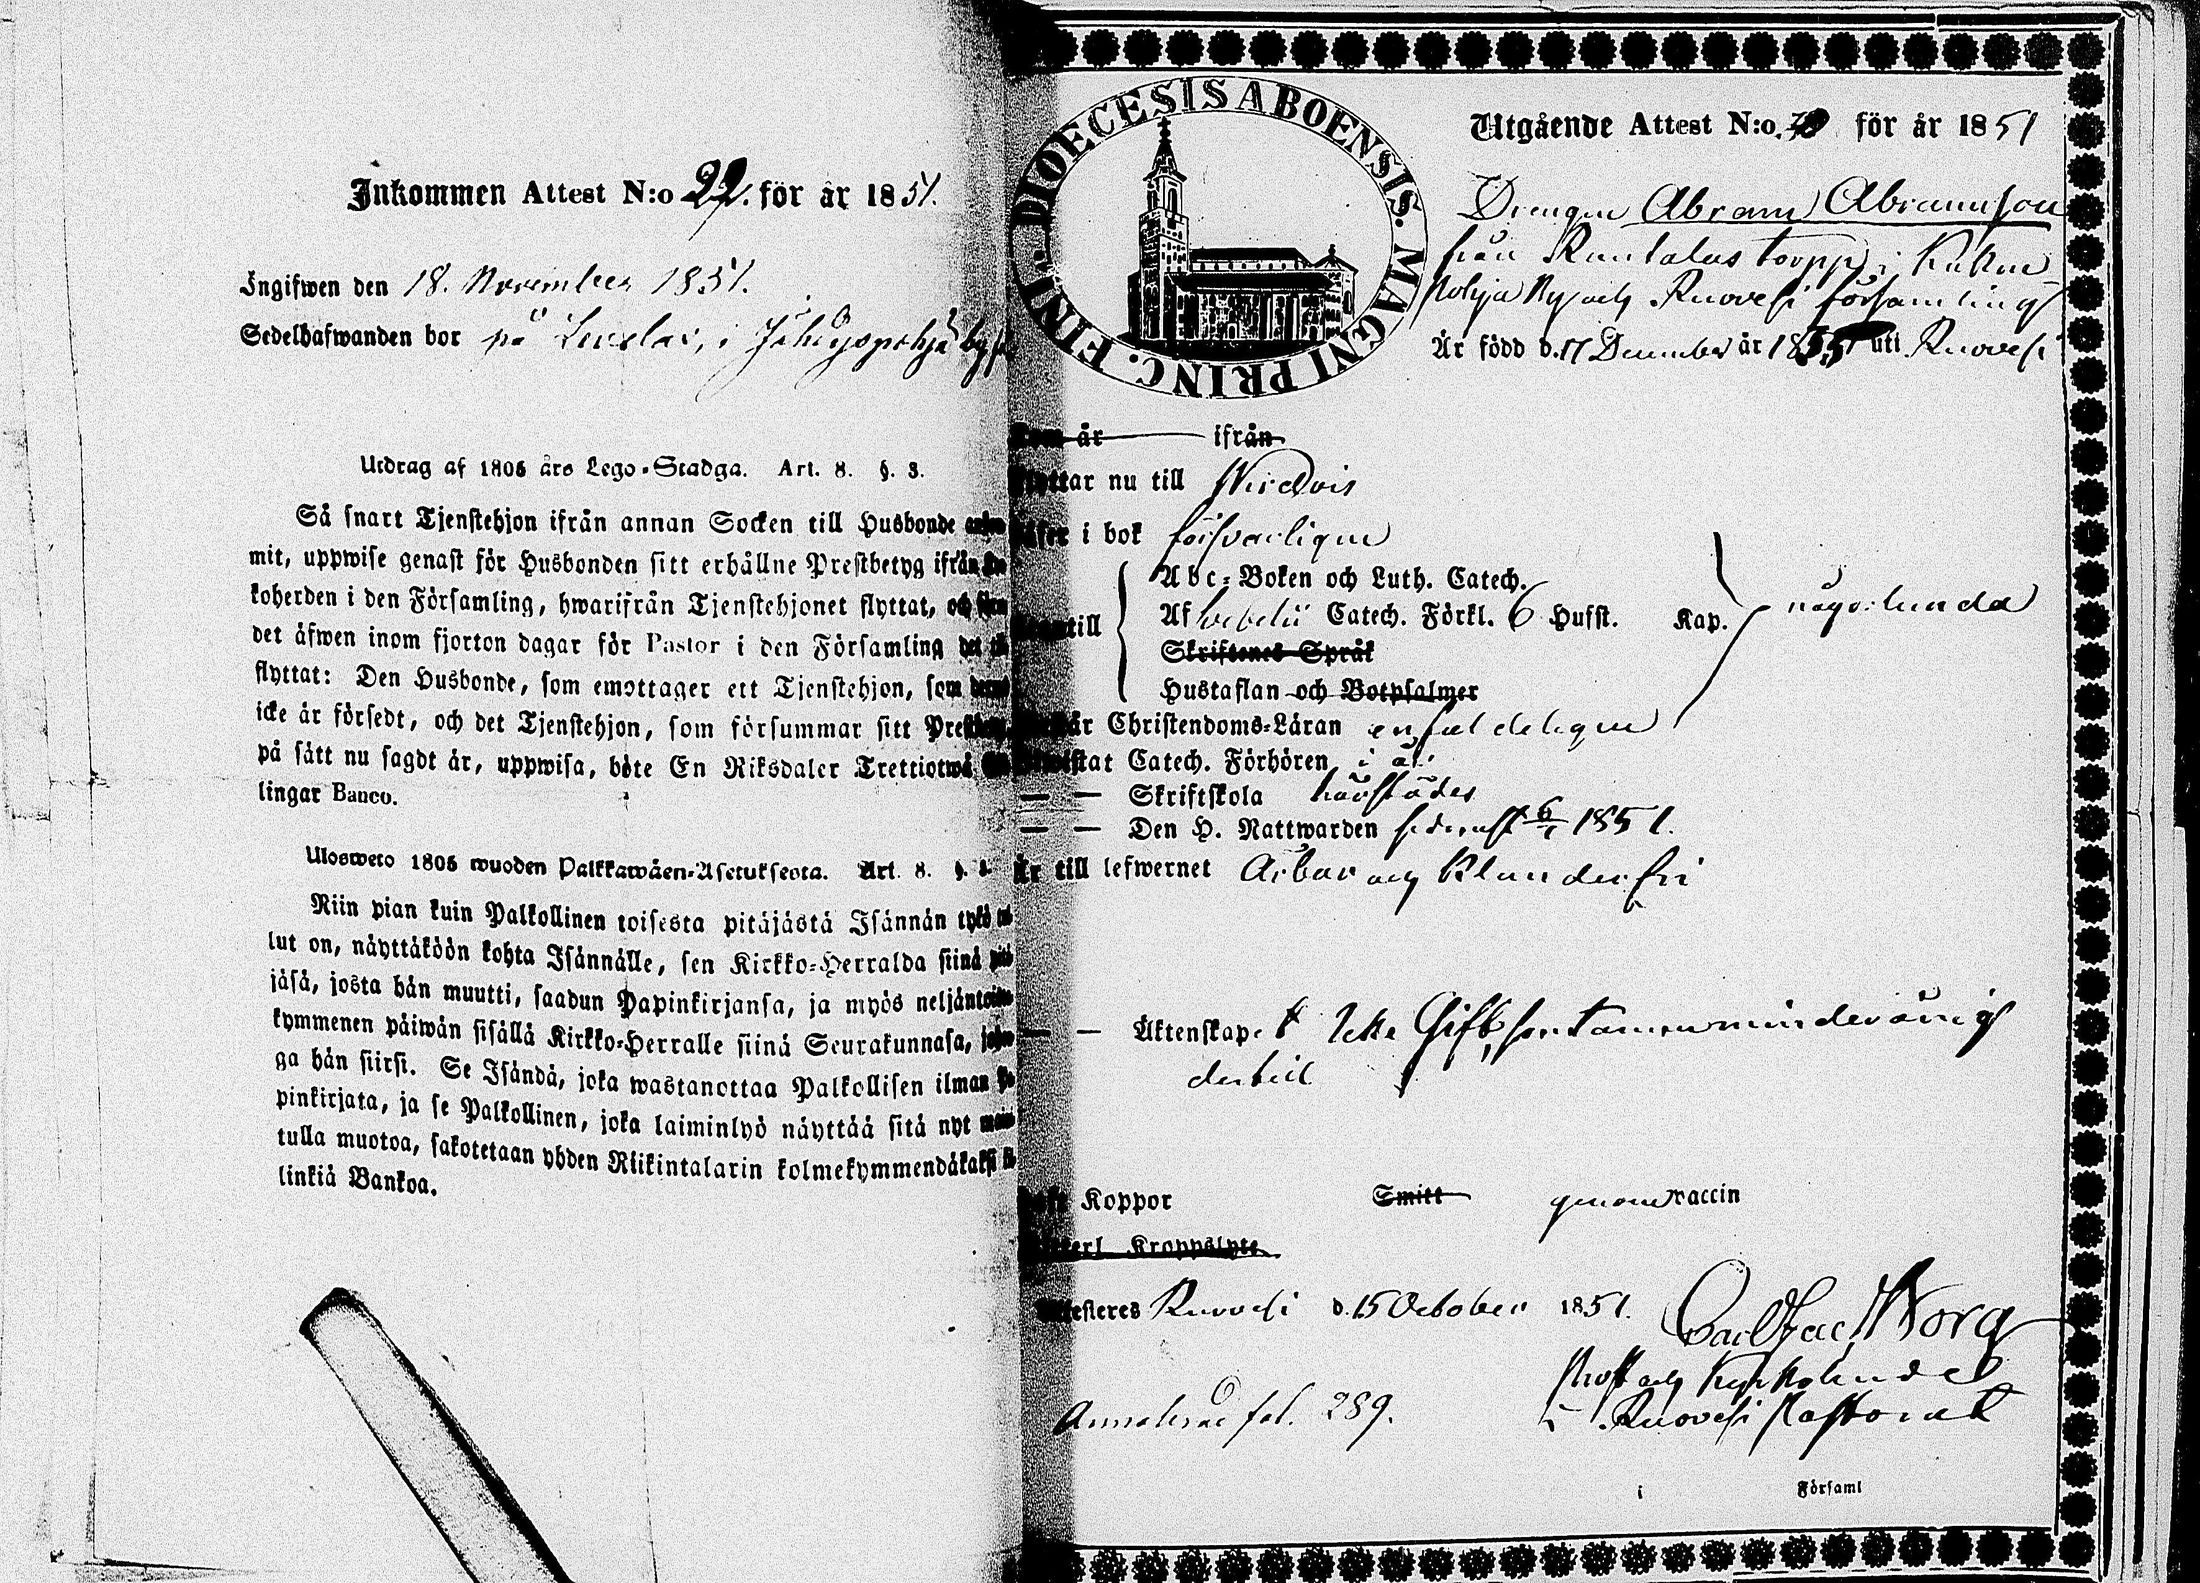 Inkommen Attest N:o 22. för år 1851.
Ingifwen den 18. November 1851.
Sedelhafwanden bor på
Utdrag af 1805 års Lego-Stadga. Art. 8. §. 3.
Så snart Tjenstehjon ifrån annan Socken till Husbonde
mit, uppwise genast för Husbonden sitt erhållne Prestbetyg ifrån
koherden i den Församling, hwarifrån Tjenstehjonet flyttat, och
det äfwen inom fjorton dagar för Pastor i den Församling det
flyttat: Den Husbonde, som emottager ett Tjenstehjon, som
icke är försedt, och det Tjenstehjon, som försummar sitt
på sätt nu sagdt är, uppwisa, böte En Riksdaler Trettiotwå
lingar Banco.
Ulosweto 1805 wuoden Palkkawäen-Asetuksesta. Art. 8. §.
Niin pian kuin Palkollinen toisesta pitäjästä Isännän tykö
lut on, näyttäköön kohta Isännälle, sen Kirkko-Herralda siinä
jäsä, josta hän muutti, saadun Papinkirjansa, ja myös
kymmenen päiwän sisällä Kirkko-Herralle siinä Seurakunnasa,
ga hän siirsi. Se Isändä, joka wastanottaa Palkollisen ilman
pinkirjata, ja se Palkollinen, joka laiminlyö näyttää sitä nyt
tulla muotoa, sakotetaan yhden Riikintalarin kolmekymmendäkaksi
linkiä Bankoa.
DIOECESIS ABOENSIS. MAGNI PRINC. FINL.
Utgående Attest N:o för år 1851
Drengen Abram Abramsson
från torpp i
by och Ruovesi församling
Är född d. 17 December år uti Ruovesi
är ifrån
nu till Wirdois
i bok försvarligen
Abc-Boken och Luth. Catech.
Af Svebelii Catech. Förkl. 6 Hufst. Kap. någorlunda
Skriftenes Språk
Hustaflan och Botpsalmer
Christendoms-Läran enfaldeligen
Catech. Förhören i år
— — Skriftskola härstädes
— — Den H. Nattwarden sednast 6/1 1851.
Är till lefwernet ärbar och klanderfri
— — Äktenskap: Icke Gift, som tamen minderårig
dertill
Koppor Smitt genom vaccin
Kroppslyte
Ruovesi d. 15 October 1851.
Prost och Kyrkoherde
i Ruovesi Pastorat
fol. 289.
i Församl